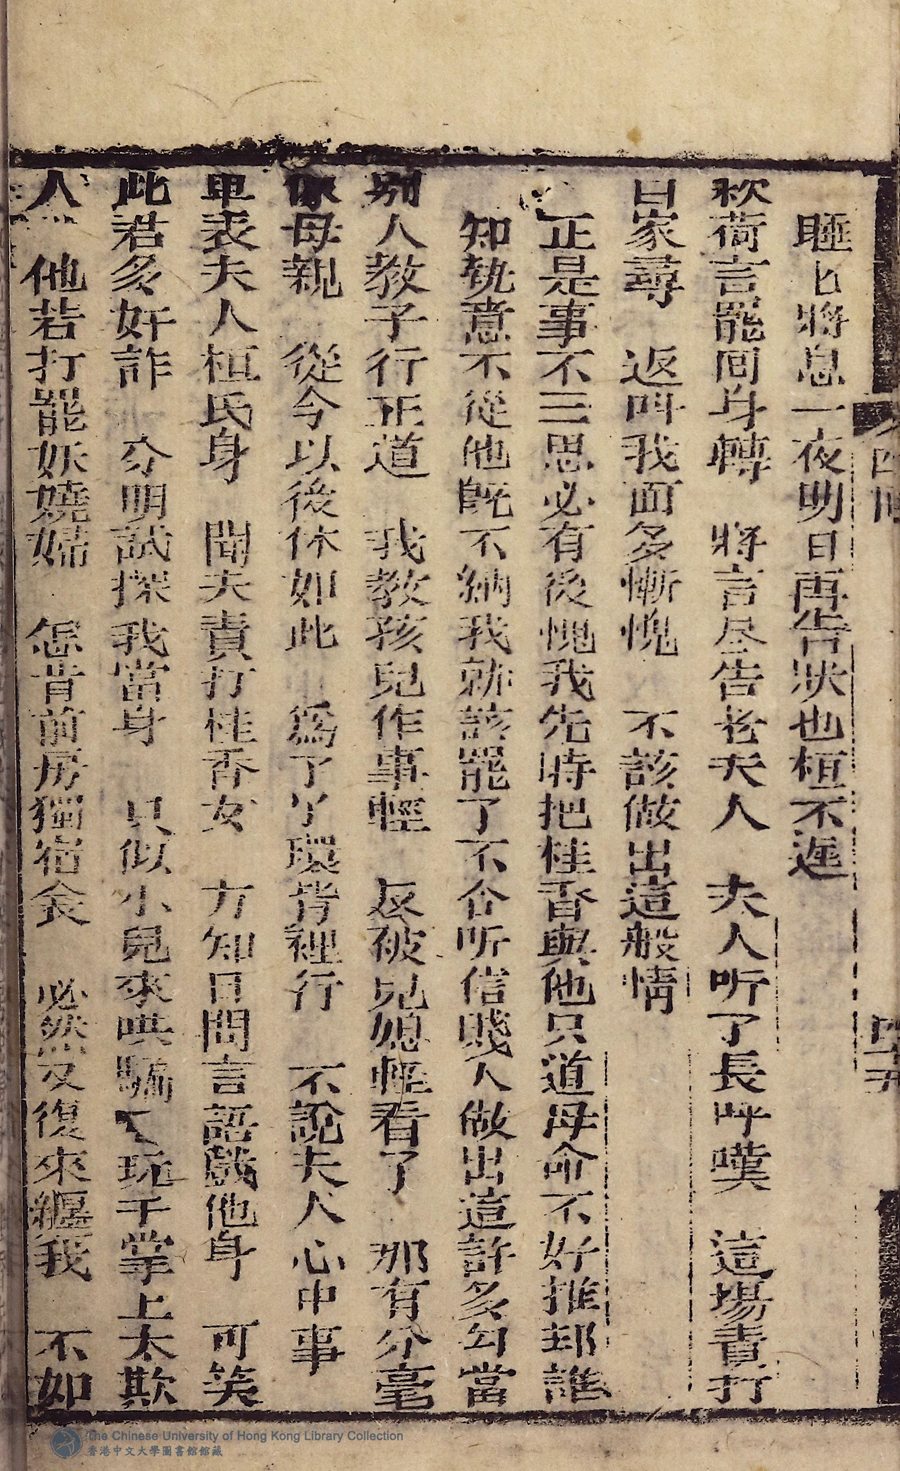 睡七將息一夜明日再告狀也桓不遲
秋荷言罷囘身轉　將言尽告老夫人　夫人听了長呼嘆　這場責打
自家尋　返叫我面多慚愧　不該做出這般情
正是事不三思必有後愧我先時把桂香與他只道母命不好推却誰
知執意不從他既不納我就該罷了不合听信賤人做出這許多勾當
別人教子行正道　我教孩兒作事輕　反被兒媳輕看了　那有分毫
像母親　從今以後休如此　爲了丫環背裡行　不說夫人心中事
单表夫人桓氏身　聞夫責打桂香女　方知日間言語戲他身　可笑
此君多奸詐　分明試探我當身　只似小兒來哄騙　玩于掌上太欺
人　他若打罷妖嬈婦　怎肯前房獨宿衾　必然又復來纏我　不如
四十五
The Chinese University of Hong Kong Library Collection
香港中文大學圖書館館藏